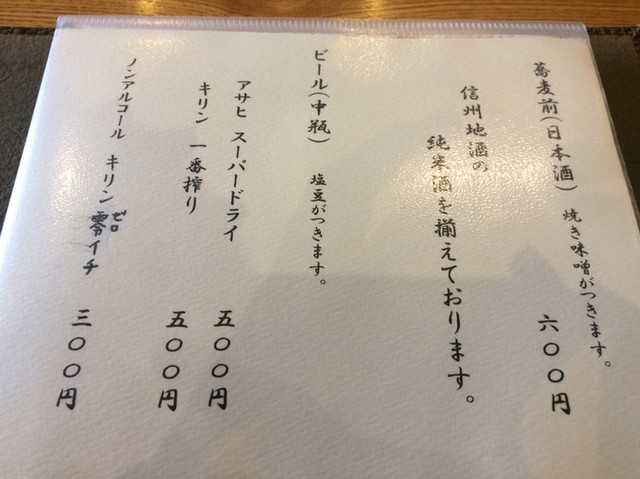 蕎麦前(日本酒) 六〇〇円
焼き味噌がつきます。
信州地酒の
純米酒を揃えております。
ビール(中瓶) 塩豆がつきます。
アサヒ スーパードライ 五〇〇円
キリン 一番搾り 五〇〇円
ノンアルコール キリン 零イチ 三〇〇円
ゼロ